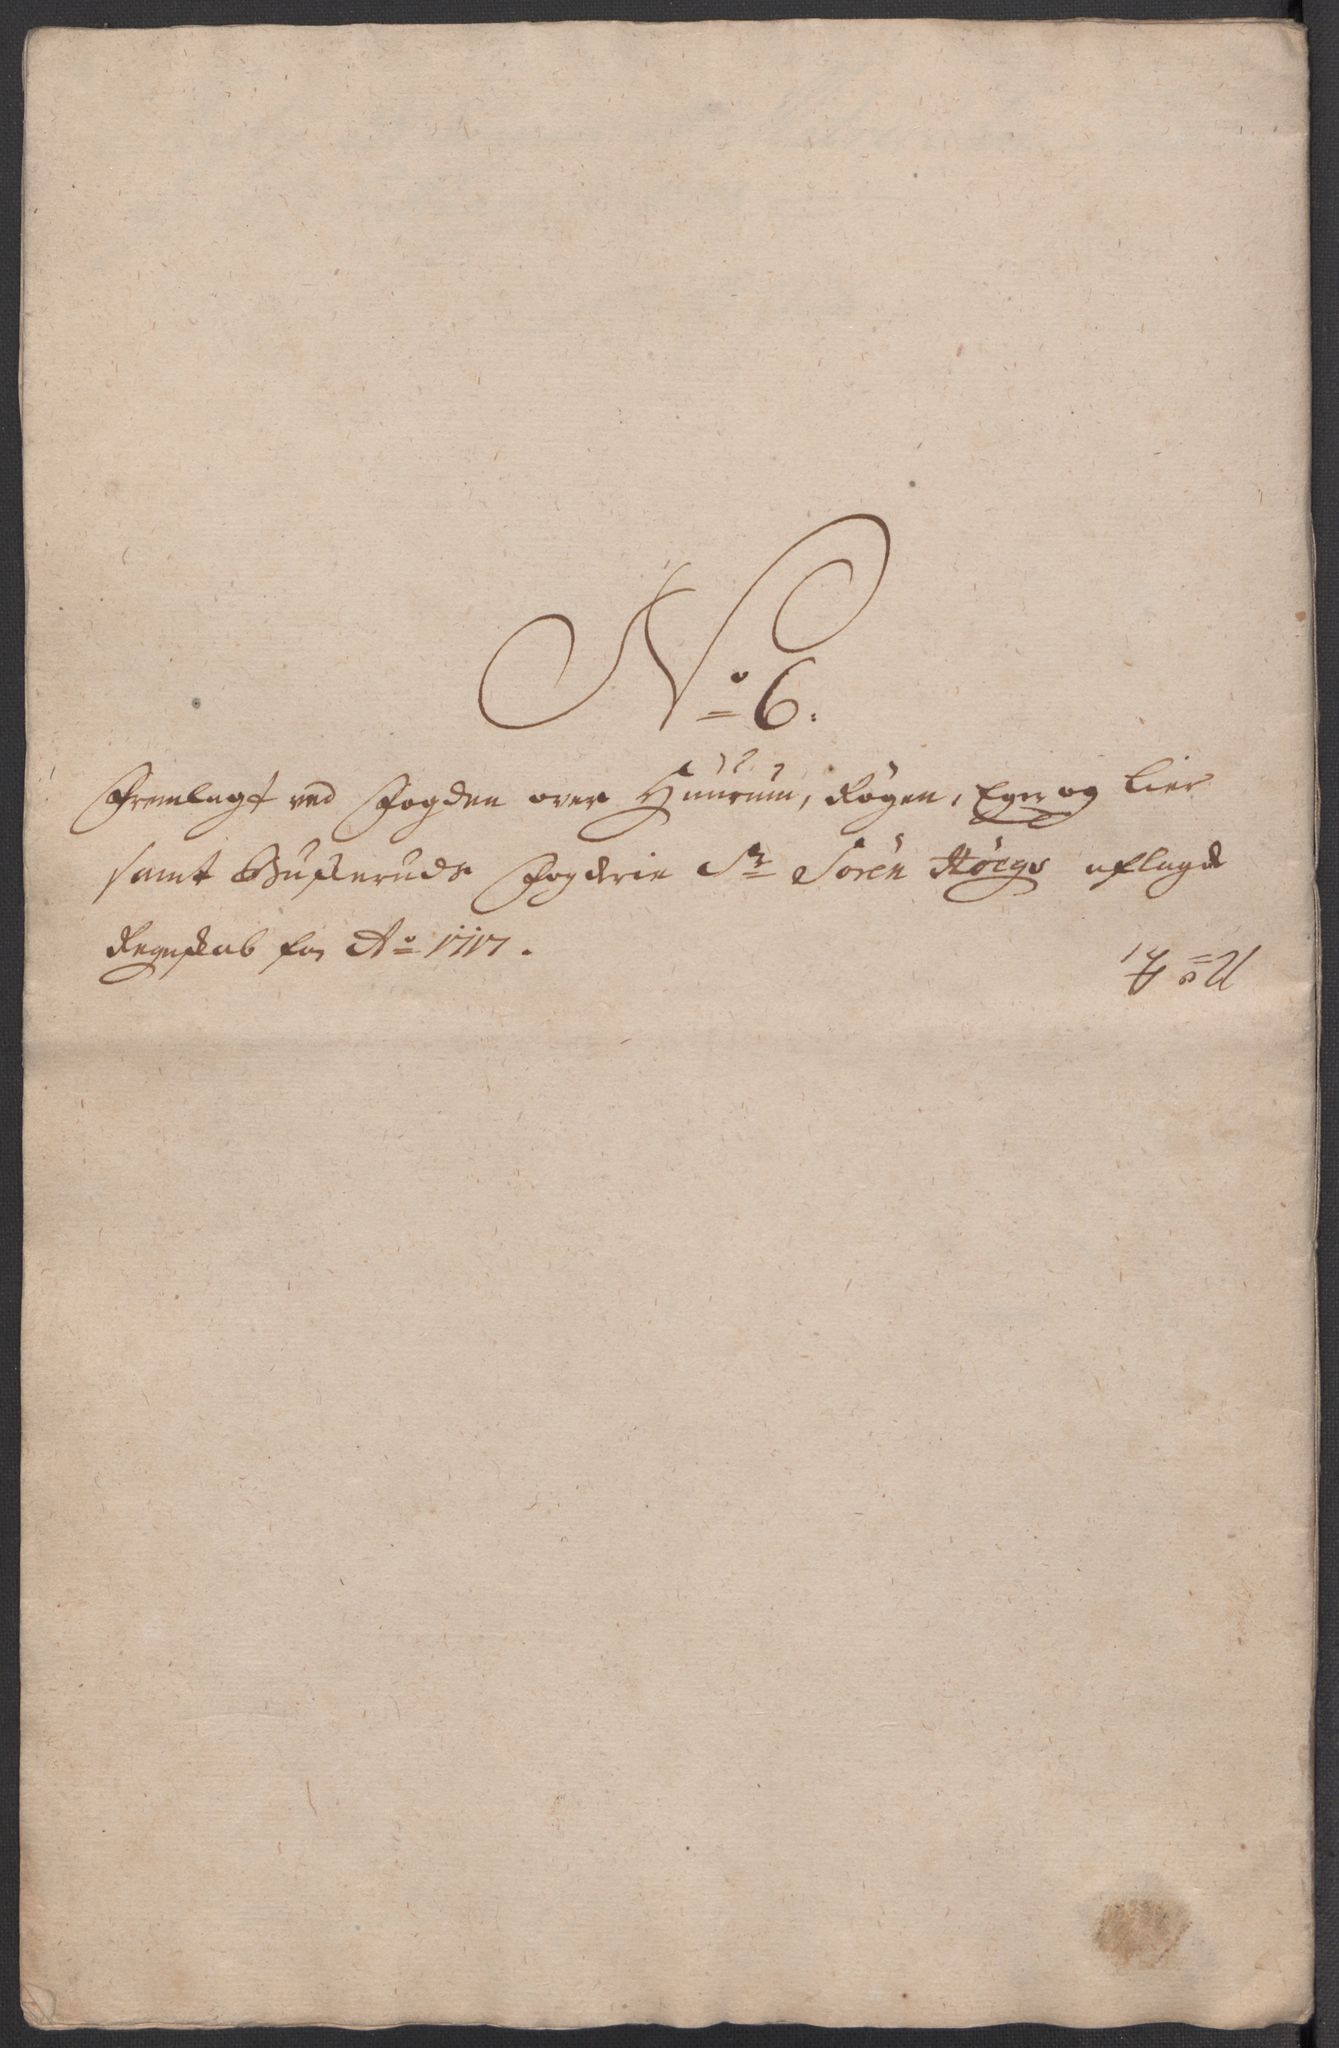 No 6.
Fremlagt ved Fogden over Huurum, Røgen, Eger og Lier
samt Buskeruds Fogderie Sr Søren Høegs aflagde
Regnskab for Ao 1717.
No